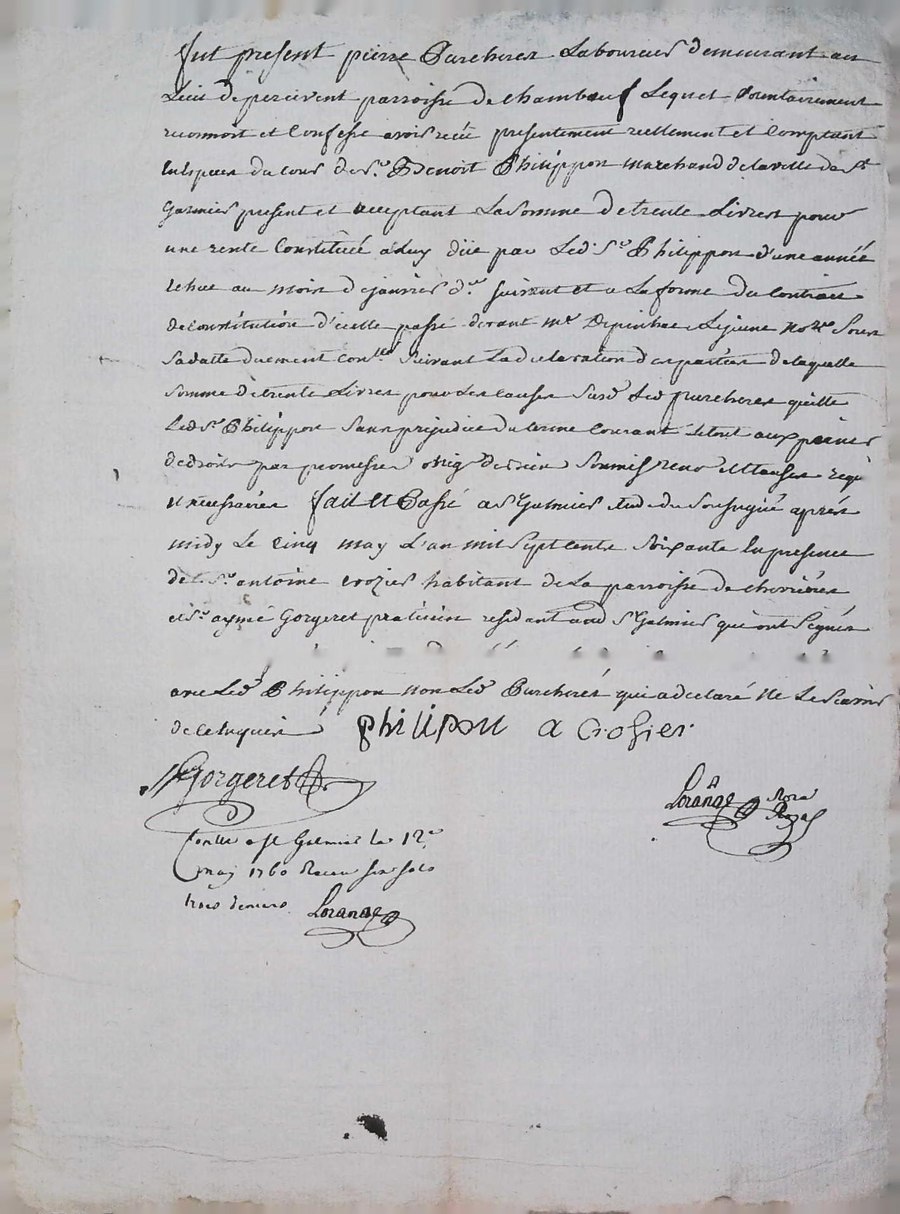 fut present pierre Burcherer Laboureur demeurant au
Lieu de percivent parroisse de chambeuf Lequel volontairement
reconnoit et Confesse avoir reçu presentement reellement et Comptant
En especes du cours de sr. Benoit Philippon marchand de la ville de St
Galmier present et acceptant La somme de trente Livres pour
une rente Constituée a Luy düe par Led. sr. Philippon d'une année
echue au mois de janvier der. suivant et a La forme du Contract
de constitution d'icelle passé devant me Depinhac Lejeune nore Sous
sa datte duement conllé suivant La declaration des parties de laquelle
somme de trente Livres pour les causes susd. Led Burcherer quitte
Led Sr Philippon sans prejudice du terme courant Le tout aux peines
de droit par promesses oblig. des biens soumis. reno et clauses requi
et necessaires fait et Passé a St Galmier Etude du Soussigné après
midy Le cinq may L'an mil sept cents soixante En presence
de Sr. antoine crozier habitant de La parroisse de chevrieres
et sr. aymé Gorgeret praticien residant aud St Galmier qui ont signés
avec Led. Philippon non Led. Burcherer qui a declaré ne Le scavoir
de ce Enquis
philipon a Crosier
Gorgeret
Lorange Nore Royal
Conllé a St Galmier Le 12e
may 1760 Receu six sols
trois deniers Lorange